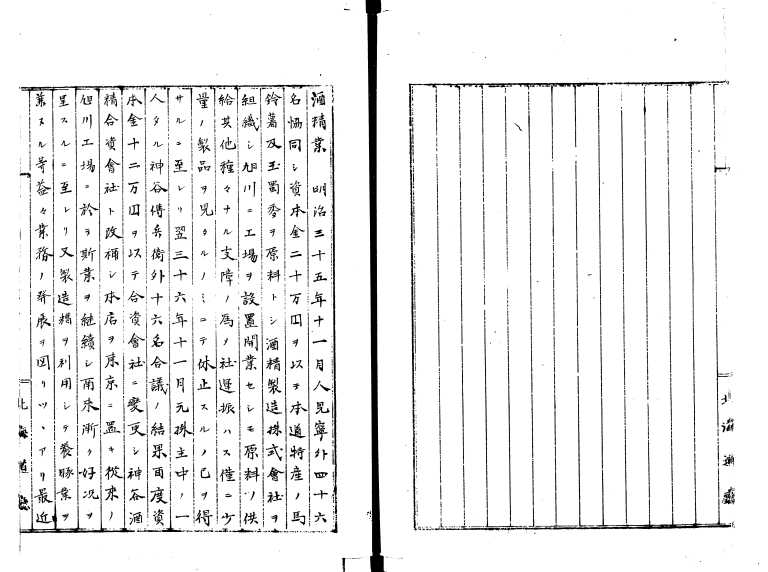 酒精業 明治三十五年十一月人見寧外四十六
名協同シ資本金二十万円ヲ以テ本道特産ノ馬
鈴薯及玉蜀黍ヲ原料トシ酒精製造株式會社ヲ
組織シ旭川ニ工場ヲ設置開業セシモ原料ノ供
給其他種々ナル支障ノ為ノ社運振ハス僅ニ少
量ノ製品ヲ見タルノミニテ休止スルノ已ヲ得
サルニ至レリ翌三十六年十一月元株主中ノ一
人タル神谷傳兵衛外十六名合議ノ結果再度資
本金十二万円ヲ以テ合資會社ニ変更シ神谷酒
精合資會社ト改稱シ本店ヲ東京ニ置キ従来ノ
旭川工場ニ於テ斯業ヲ継続シ爾来漸ク好况ヲ
呈スルニ至レリ又製造粕ヲ利用シテ養豚業ヲ
兼スル等益々業務ノ発展ヲ図リツヽアリ最近
北海道廳
北海道廳